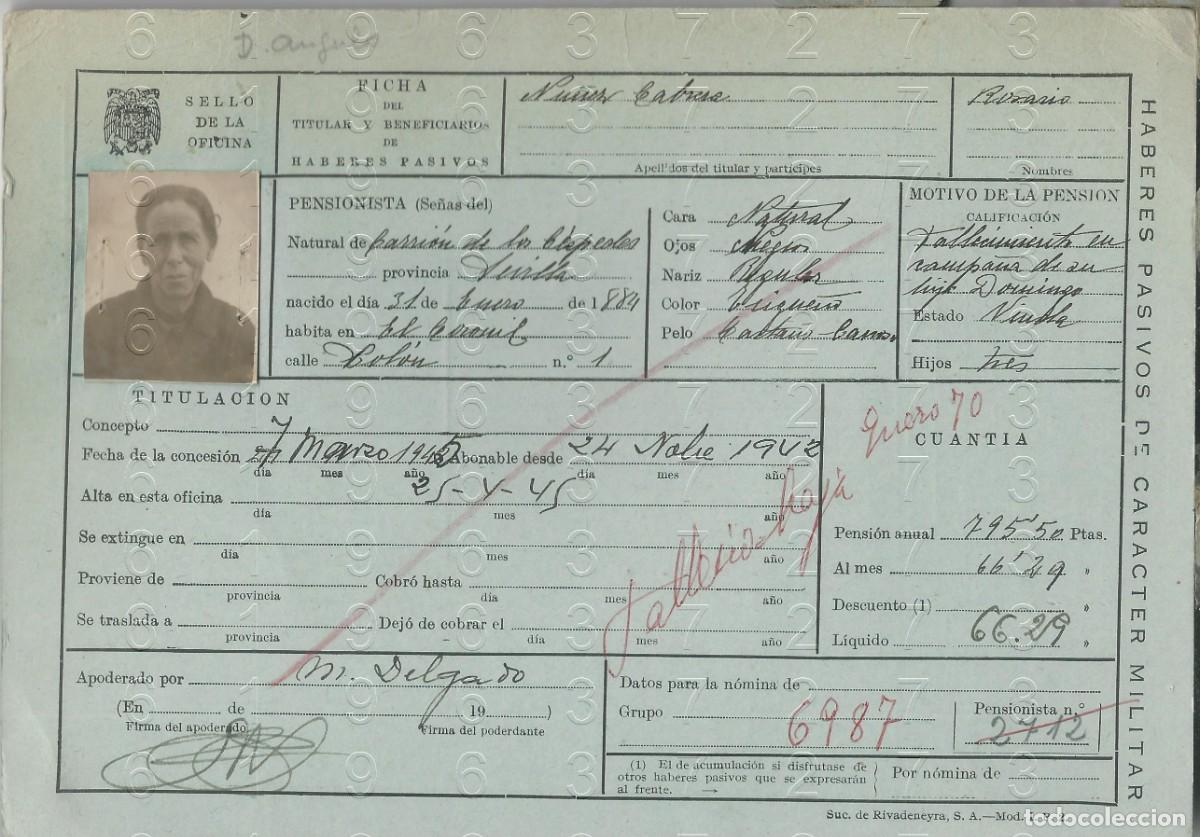 D.
SELLO
DE LA
OFICINA
FICHA
DEL
TITULAR Y BENEFICIARIOS
DE
HABERES PASIVOS
Nuñez Cabrera
Apellidos del titular y partícipes
Rosario
Nombres
HABERES PASIVOS DE CARACTER MILITAR
PENSIONISTA (Señas del)
Natural de Carrión de los Céspedes
provincia Sevilla
nacido el día 31 de Enero de 1884
habita en El Coronil
calle Colón n.° 1
Cara Natural
Ojos Negros
Nariz Regular
Color Trigueño
Pelo Castaño-Canoso
MOTIVO DE LA PENSION
CALIFICACIÓN
Fallecimiento en
campaña de su
hijo Domingo
Estado Viuda
Hijos tres
TITULACION
Concepto
Fecha de la concesión 7 Marzo 1945 Abonable desde 24 Nobe 1942
día mes año día mes año
Alta en esta oficina 25-4-45
día mes año
Se extingue en
día mes año
Proviene de Cobró hasta
provincia mes año
Se traslada a Dejó de cobrar el
provincia día mes año
Falleció-baja
Enero 70
CUANTIA
Pensión anual 795'50 Ptas.
Al mes 66'29 »
Descuento (1) »
Líquido 66.29 »
Apoderado por M. Delgado
(En de 19 )
Firma del apoderado Firma del poderdante
Datos para la nómina de
Grupo 6987
Pensionista n.°
2712
(1) El de acumulación si disfrutase de
otros haberes pasivos que se expresarán
al frente. →
Por nómina de
Suc. de Rivadeneyra, S. A.—Mod.
todocoleccion